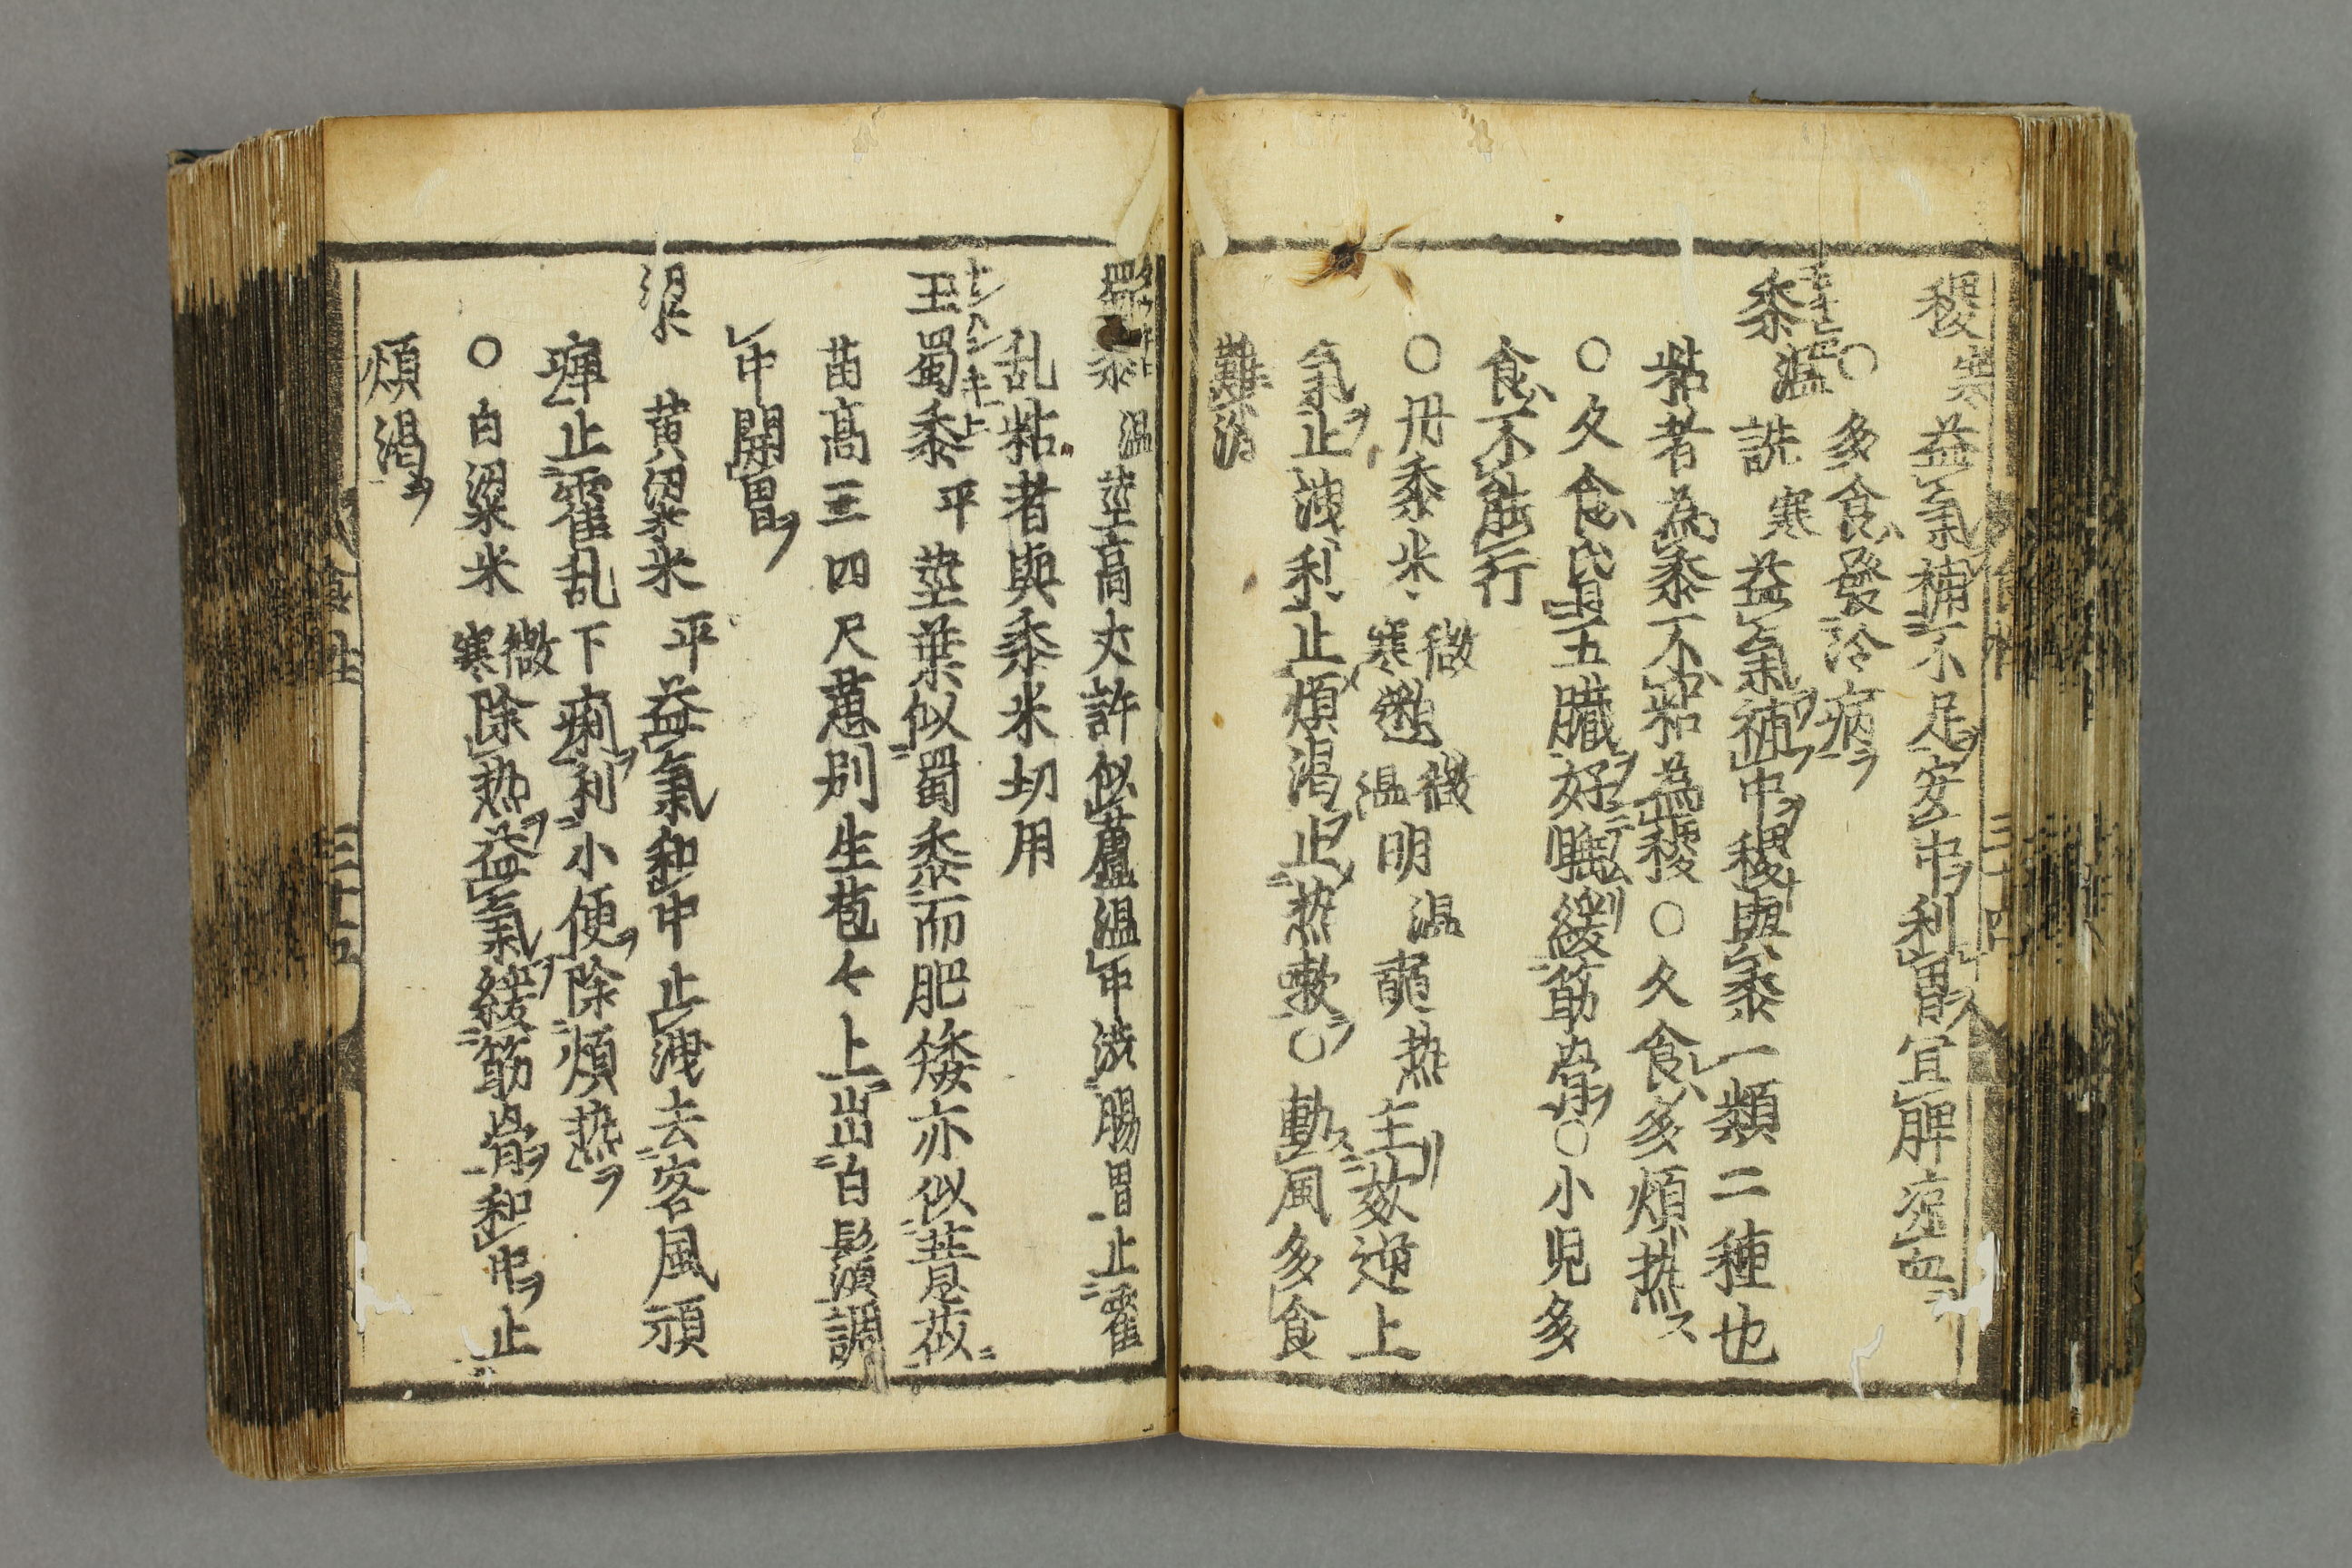 稷寒益氣補不足安中利胃宜脾涼血
〇多食發冷病ヲ
黍温詵寒益氣補中稷與黍一類二種也
粘者為黍不粘為稷〇久食多煩热
〇久食昏五臓好睡緩筋骨〇小児多
食不能行
〇丹黍米微寒微温明温熱主欬逆上
氣止洩利止煩渇止热嗽〇動風多食
難消
蜀黍温莖高丈許似蘆温中渋腸胃止霍
乱粘者與黍米切用
玉蜀黍平莖葉似蜀黍而肥矮亦似薏苡
苗高三四尺薏別生苞々上出白鬚須調
中開胃ヲ
粱黄粱米平益氣和中止洩去客風頑
痺止霍乱下痢利小便除煩热ヲ
〇白粱米微寒除热益氣緩筋骨和中止
煩渇ヲ